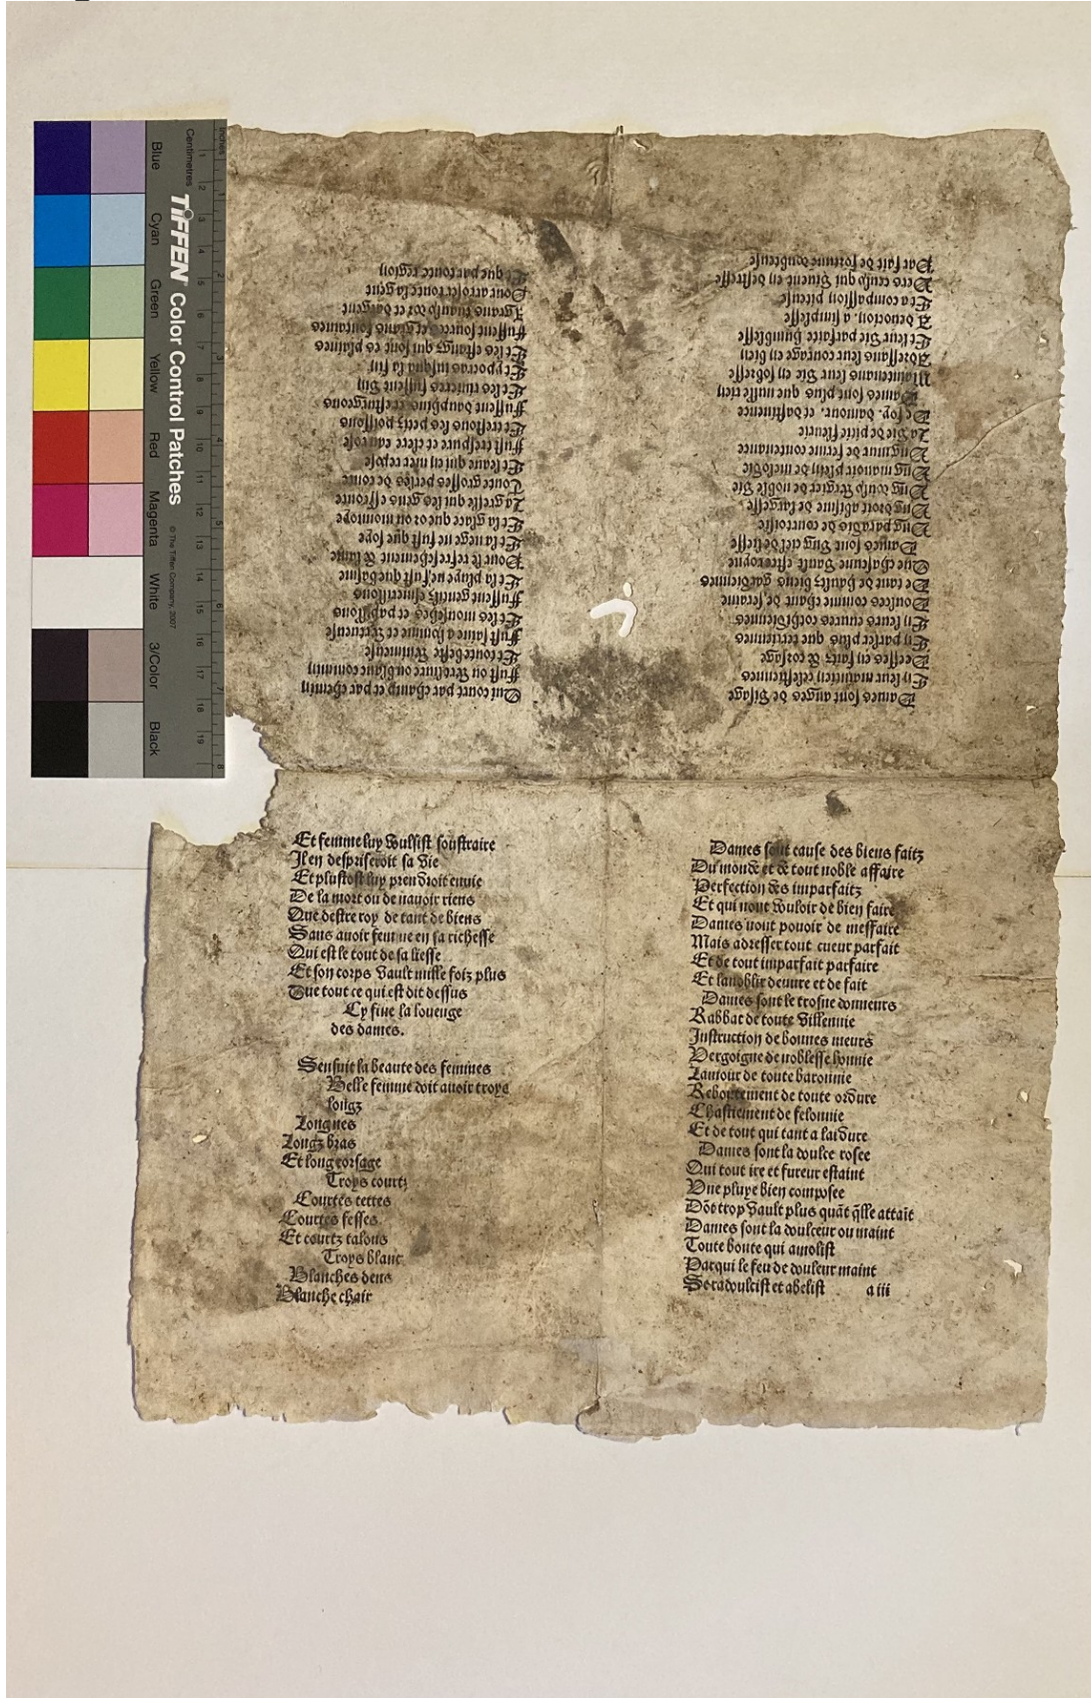 Blue Cyan Green Yellow Red Magenta White 3/Color Black
TIFFEN Color Control Patches © The Tiffen Company, 2007
Centimetres
Inches
Qui court par champ et par chemin
Fust ou verdure ou blanc commun
Et toute beste venimeuse
Fust saine a homme et vertueuse
Et les mousches et papillons
Fussent gentilz esmerillons
Et la pluye ne fust que basme
Pour le refreschement & lame
Et la neige ne fust que soye
Et la glace que or ou monnoye
La gresle qui les gens effronte
Toute grosses perles de conte
Et leaue qui en mer repose
Fust trespure et clere eau rose
Et trestous les petiz poissons
Fussent daulphins et esturgeons
Et les rivieres fussent vin
Et ypocras iusqua la fin
Et les estangz qui sont es plaines
Fussent sources et vives fontaines
Ayant tuyaulx dor et dargent
Pour arroser toute la gent
Et que par toute region
Dames sont anges de visage
En leur maintien celestiennes
Deesses en faitz & corsage
En parler plus que terriennes
En leurs euures cothidiennes
Doulces comme chant de seraine
De tant de haultz biens gardiennes
Que chascune vault estre royne
Dames sont ung ciel de liesse
Ung paradis de courtoisie
Ung droit abisme de largesse
Ung doulx vergier de noble vie
Ung manoir plein de melodie
Ung mur de ferme contenance
La vie de pitie fleurie
De foy. damour. et dabstinence
Dames sont plus que nulle rien
Maintenans leur vie en sobresse
Adressans leur courage en bien
Et leur vie parfaite humblesse
A deuocion. a simplesse
Et a compassion piteuse
Vers ceulx qui viuent en destresse
Par fait de fortune doubteuse
Et femme luy voulsist soustraire
Il en despriseroit sa vie
Et plustost luy prendroit enuie
De la mort ou de nauoir riens
Que destre roy de tant de biens
Sans auoir femme en sa richesse
Qui est le tout de sa liesse
Et son corps vault mille foiz plus
Que tout ce qui est dit dessus
Cy fine la louenge
des dames.
Sensuit la beaute des femmes
Belle femme doit auoir troys
longz
Longues
Longz bras
Et long corsage
Troys courtz
Courtes tettes
Courtes fesses
Et courtz talons
Troys blanc
Blanches dens
Blanche chair
Dames sont cause des biens faitz
Du monde et de tout noble affaire
Perfection des imparfaitz
Et qui nont vouloir de bien faire
Dames nont pouoir de meffaire
Mais adresser tout cueur parfait
Et de tout imparfait parfaire
Et lanoblir deuure et de fait
Dames sont le trosne donneurs
Rabbat de toute villennie
Instruction de bonnes meurs
Vergoigne de noblesse honnie
Lamour de toute baronnie
Reboutement de toute ordure
Chastiement de felonnie
Et de tout qui tant a laidure
Dames sont la doulce rosee
Qui tout ire et fureur estaint
Vne pluye bien composee
Dõt trop vault plus quãt q̃lle attaĩt
Dames sont la doulceur ou maint
Toute bonte qui amolist
Par qui le feu de douleur maint
Se radoulcist et abelist a iii